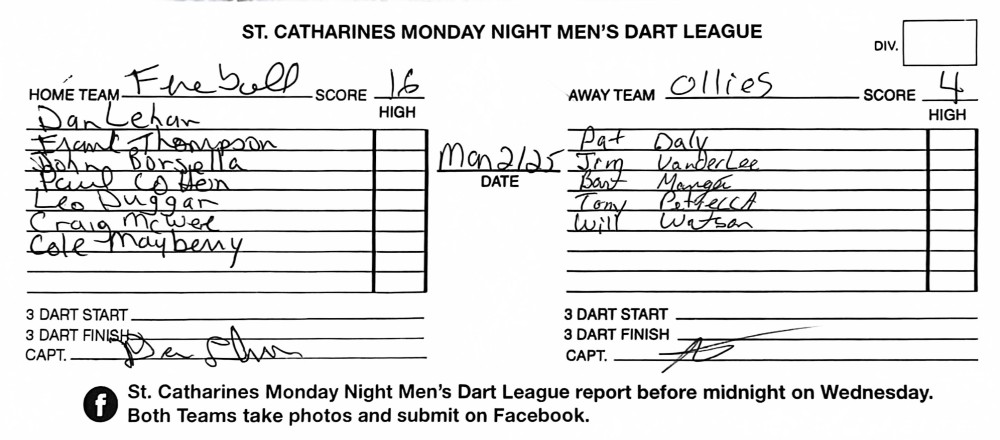 ST. CATHARINES MONDAY NIGHT MEN'S DART LEAGUE
DIV.
HOME TEAM Fireball SCORE 16
HIGH
Dan Lehan
Frank Thompson
John Borsella
Paul
Leo Duggan
Craig McWee
Cole Mayberry
3 DART START
3 DART FINISH
CAPT.
Mar 21/25
DATE
AWAY TEAM Ollies SCORE 4
HIGH
Pat Daly
Jim VanderLee
Bart
Tom
Will Watson
3 DART START
3 DART FINISH
CAPT.
f St. Catharines Monday Night Men's Dart League report before midnight on Wednesday.
Both Teams take photos and submit on Facebook.